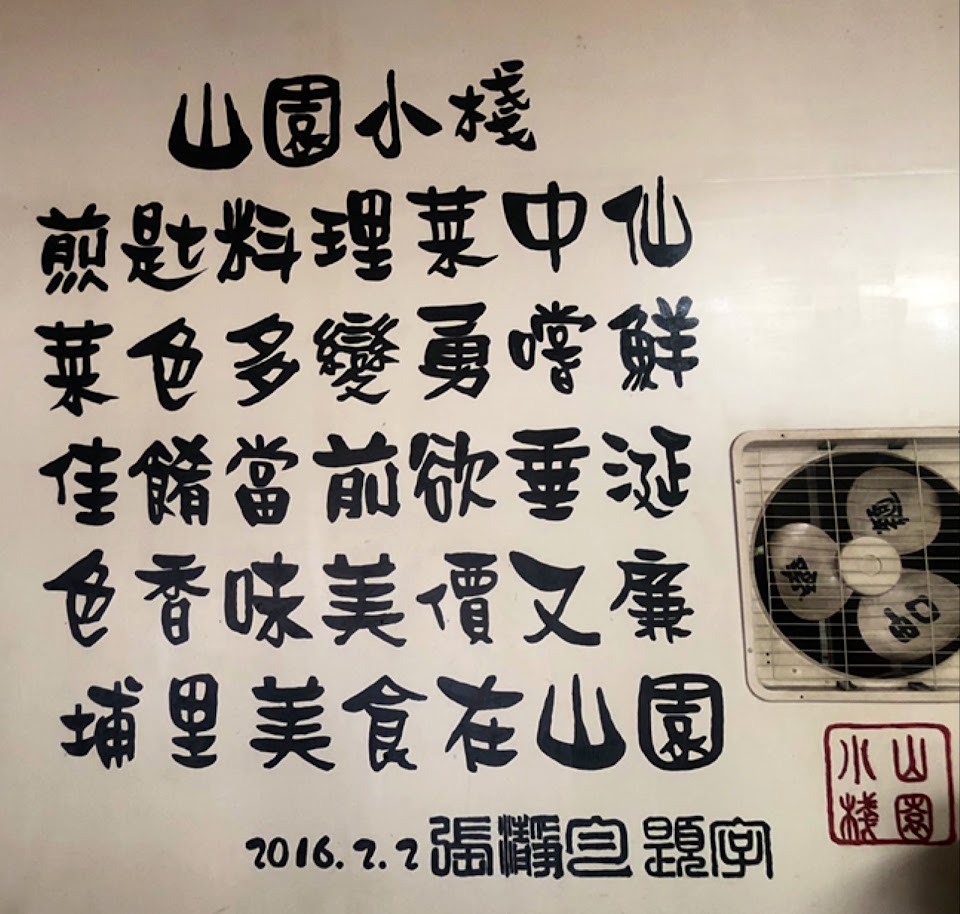 山園小棧
煎匙料理菜中仙
菜色多變勇嚐鮮
佳餚當前欲垂涎
色香味美價又廉
埔里美食在山園
2016.2.2 張瀞 題字
山園
小棧